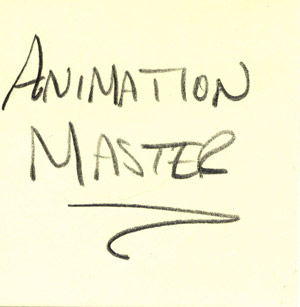 ANIMATION
MASTER